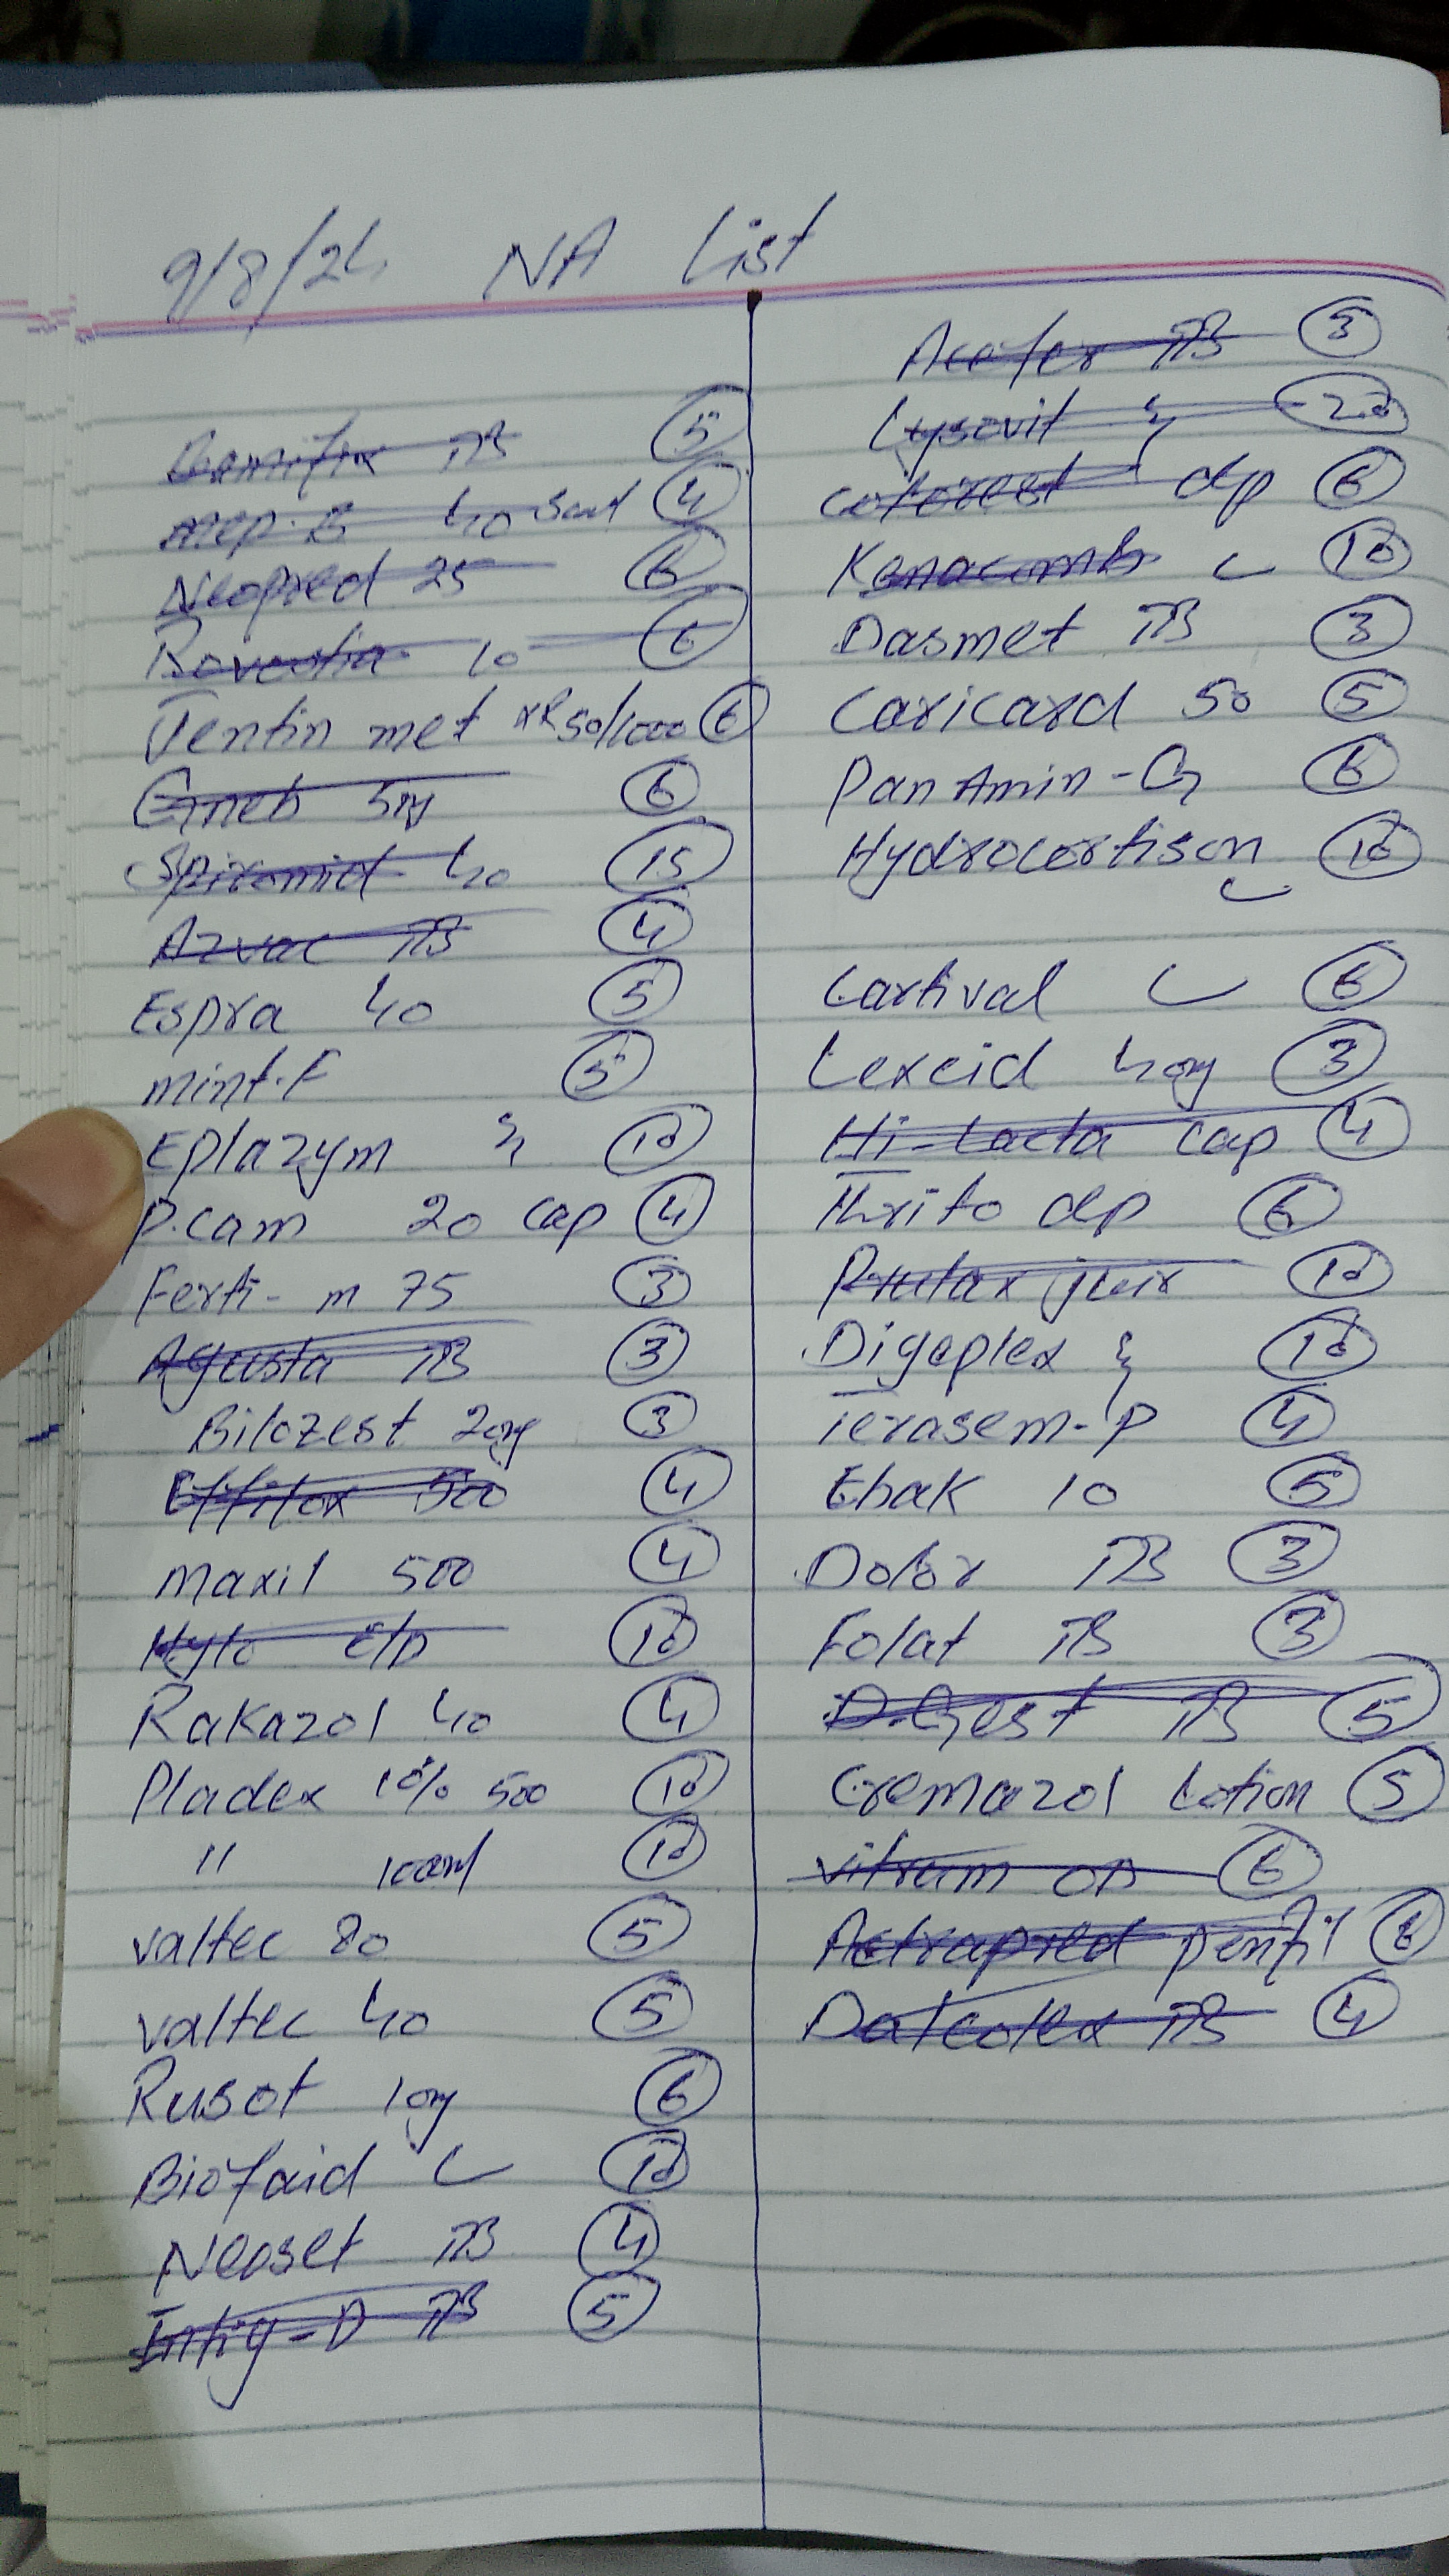 9/8/24 NA List
Gemifix TB 5
mep.B 40 4
Neopred 25 6
10 6
Tentin met XR 50/1000 6
5mg 6
Spiromid 40 15
Azvac TB 4
Espra 40 5
mint.F 5
Eplazym 10
P.cam 20 cap 4
Ferti-m 75 3
Agusta TB 3
Bilozest 20mg 3
Effilox 500 4
Maxil 500 4
Hylo E/D 10
Rakazol 40 4
Pladex 10% 500 10
" 100ml 10
valtec 80 5
valtec 40 5
Rusot 10mg 6
Biofaid 10
Neoset TB 4
Intig-D TB 5
Acefer TB 3
Lysovit 20
Colorest dp 6
Kenacomb c 10
Dasmet TB 3
Caricard 50 5
Pan Amin-G 6
Hydrocortison 10
c
Cartival c 6
Lexcid 40mg 3
Hi-Lacta cap 4
Thrito dp 6
10
Digeplex 10
Terasem-P 4
Ebak 10 5
Dolor TB 3
Folat TB 3
D.Gest TB 5
Cremazol Lotion 5
vitrum OD 6
Actrapred penfil 6
Dalcolex TB 4